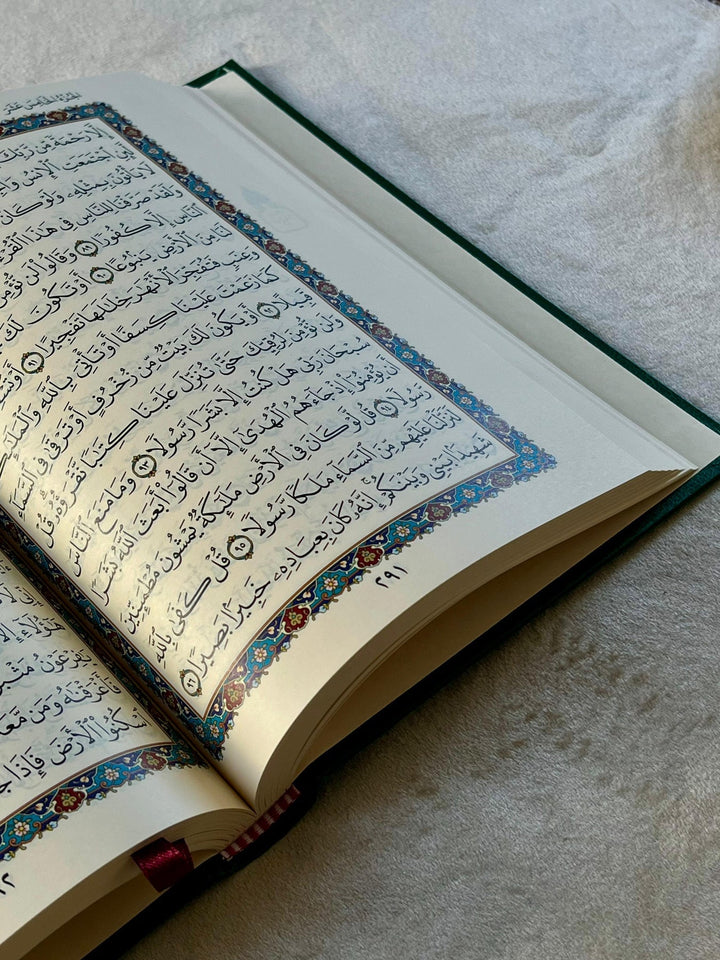 الجزء الخامس عشر
إِلَّا رَحْمَةً مِّن رَّبِّكَ
لَّئِنِ ٱجْتَمَعَتِ ٱلْإِنسُ
لَا يَأْتُونَ بِمِثْلِهِۦ وَلَوْ كَانَ
وَلَقَدْ صَرَّفْنَا لِلنَّاسِ فِى هَٰذَا ٱلْقُرْءَانِ
ٱلنَّاسِ إِلَّا كُفُورًا ٨٩ وَقَالُوا۟ لَن نُّؤْمِنَ
لَنَا مِنَ ٱلْأَرْضِ يَنۢبُوعًا ٩٠ أَوْ تَكُونَ لَكَ
وَعِنَبٍ فَتُفَجِّرَ ٱلْأَنْهَٰرَ خِلَٰلَهَا تَفْجِيرًا ٩١ أَوْ تُسْقِطَ
كَمَا زَعَمْتَ عَلَيْنَا كِسَفًا أَوْ تَأْتِىَ بِٱللَّهِ وَٱلْمَلَٰٓئِكَةِ
قَبِيلًا ٩٢ أَوْ يَكُونَ لَكَ بَيْتٌ مِّن زُخْرُفٍ أَوْ تَرْقَىٰ فِى ٱلسَّمَآءِ
وَلَن نُّؤْمِنَ لِرُقِيِّكَ حَتَّىٰ تُنَزِّلَ عَلَيْنَا كِتَٰبًا نَّقْرَؤُهُۥ ۗ قُلْ
سُبْحَانَ رَبِّى هَلْ كُنتُ إِلَّا بَشَرًا رَّسُولًا ٩٣ وَمَا مَنَعَ ٱلنَّاسَ
أَن يُؤْمِنُوٓا۟ إِذْ جَآءَهُمُ ٱلْهُدَىٰٓ إِلَّآ أَن قَالُوٓا۟ أَبَعَثَ ٱللَّهُ بَشَرًا
رَّسُولًا ٩٤ قُل لَّوْ كَانَ فِى ٱلْأَرْضِ مَلَٰٓئِكَةٌ يَمْشُونَ مُطْمَئِنِّينَ
لَنَزَّلْنَا عَلَيْهِم مِّنَ ٱلسَّمَآءِ مَلَكًا رَّسُولًا ٩٥ قُلْ كَفَىٰ بِٱللَّهِ
شَهِيدًۢا بَيْنِى وَبَيْنَكُمْ ۚ إِنَّهُۥ كَانَ بِعِبَادِهِۦ خَبِيرًۢا بَصِيرًا ٩٦
٢٩١
فَأَغْرَقْنَٰهُ وَمَن مَّعَهُۥ
ٱسْكُنُوا۟ ٱلْأَرْضَ فَإِذَا